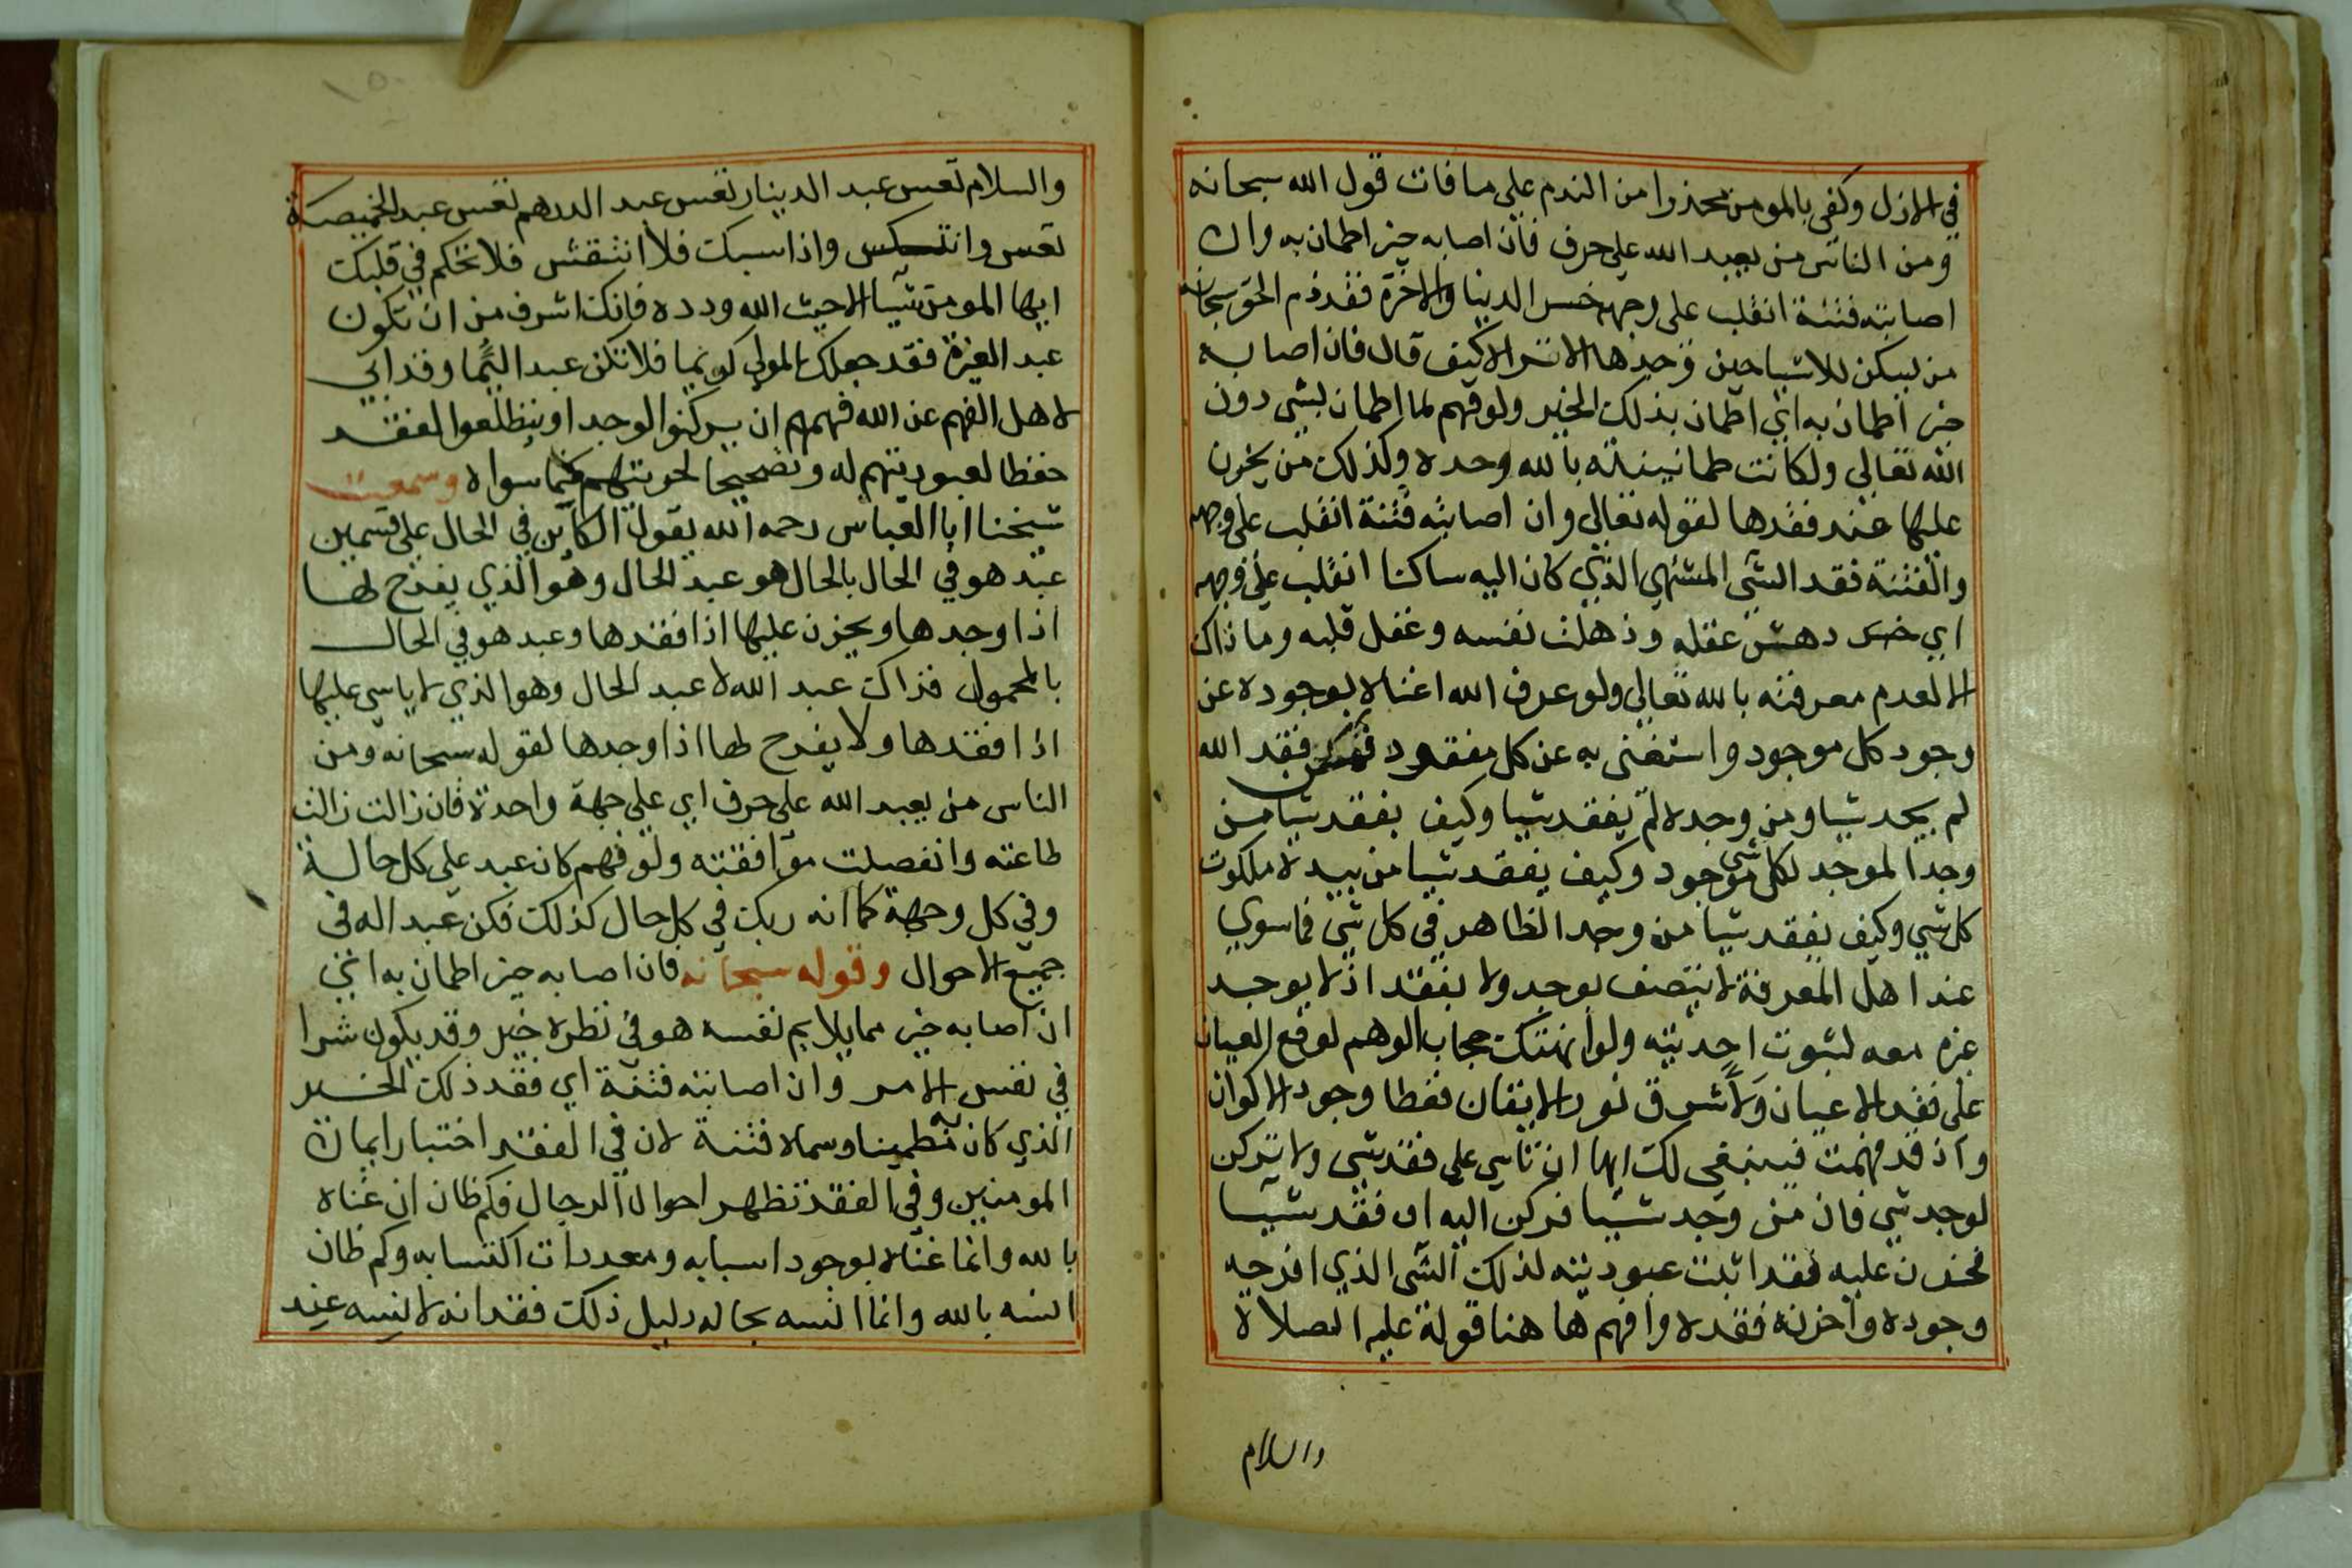 في الازل وكفى بالمومن محذرا من الندم على ما فات قول الله سبحانه
ومن الناس من يعبد الله على حرف فان اصابه خير اطمان به وان
اصابته فتنة انقلب على وجهه خسر الدنيا والاخرة فقد ذم الحق سبحانه
من يسكن للاشيا حين وجدها الا ترا الا كيف قال فان اصابه
خير اطمان به اي اطمان بذلك الخير ولو فهم لما اطمان بشي دون
الله تعالى ولكانت طمانينته بالله وحده وكذلك من يحزن
عليها عند فقدها لقوله تعالى وان اصابته فتنة انقلب على وجهه
والفتنة فقد الشي المشتهي الذي كان اليه ساكنا انقلب على وجهه
اي خسر دهش عقله وذهلت نفسه وغفل قلبه وما ذاك
الا لعدم معرفته بالله تعالى ولو عرف الله اغناه بوجوده عن
وجود كل موجود واستغنى به عن كل مفقود فمن فقد الله
لم يجد شيا ومن وجده لم يفقد شيا وكيف يفقد شيا من
وجد الموجد لكل شي موجود وكيف يفقد شيا من بيده ملكوت
كل شي وكيف يفقد شيا من وجد الظاهر في كل شي فما سوي
عند اهل المعرفة لا يتصف بوجد ولا بفقد اذ لا يوجد
غيره معه لثبوت احديته ولو انهتك حجاب الوهم لوقع العيان
على فقد الاعيان ولاشرق نور الايقان فغطا وجود الاكوان
واذ قد فهمت فينبغي لك ايها ان تاسي على فقد شي ولا تركن
لوجد شي فان من وجد شيا فركن اليه او فقد شيا
فحزن عليه فقد اثبت عبوديته لذلك الشي الذي افرحه
وجوده واحزنه فقده وافهم ها هنا قوله عليه الصلاة
والسلام
والسلام تعس عبد الدينار تعس عبد الدرهم تعس عبد الخميصة
تعس وانتكس واذا سبك فلا انتقش فلا تحكم في قلبك
ايها المومن شيا الا حب الله ووده فانك اشرف من ان تكون
عبد الغيره فقد جعلك المولى كريما فلا تكن عبدا ليما وقد ابي
لاهل الفهم عن الله فهمهم ان يركنوا لوجد او يتطلعوا لفقد
حفظا لعبوديتهم له وتصحيحا لحريتهم مما سواه وسمعت
شيخنا ابا العباس رحمه الله يقول الكاين في الحال على قسمين
عبد هو في الحال بالحال هو عبد الحال وهو الذي يفرح لها
اذا وجدها ويحزن عليها اذا فقدها وعبد هو في الحال
بالمحمول فذاك عبد الله لا عبد الحال وهو الذي لا ياسي عليها
اذا فقدها ولا يفرح لها اذا وجدها لقوله سبحانه ومن
الناس من يعبد الله على حرف اي على جهة واحدة فان زالت زالت
طاعته وانفصلت موافقته ولو فهم كان عبد على كل حالة
وفي كل وجهة كما انه ربك في كل حال كذلك فكن عبدا له في
جميع الاحوال وقوله سبحانه فان اصابه خير اطمان به اي
ان اصابه خير مما يلايم نفسه هو في نظره خير وقد يكون شرا
في نفس الامر وان اصابته فتنة اي فقد ذلك الخير
الذي كان به مطمينا وسماه فتنة لان في الفقد اختبار ايمان
المومنين وفي الفقد تظهر احوال الرجال فكم ظان ان غناه
بالله وانما غناه بوجود اسبابه ومعددات اكتسابه وكم ظان
انسه بالله وانما انسه بحاله دليل ذلك فقدانه لانسه عند